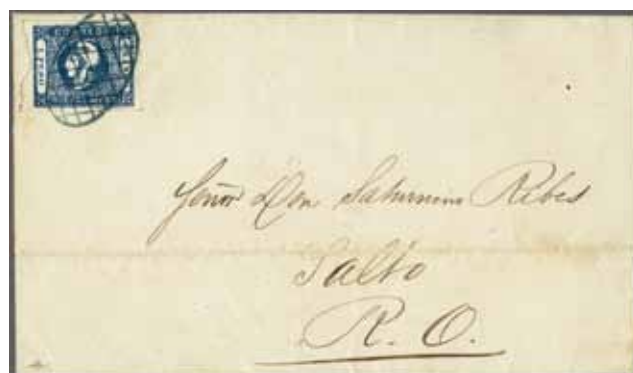 Señor Don Saturnino Ribes
Salto
R. O.